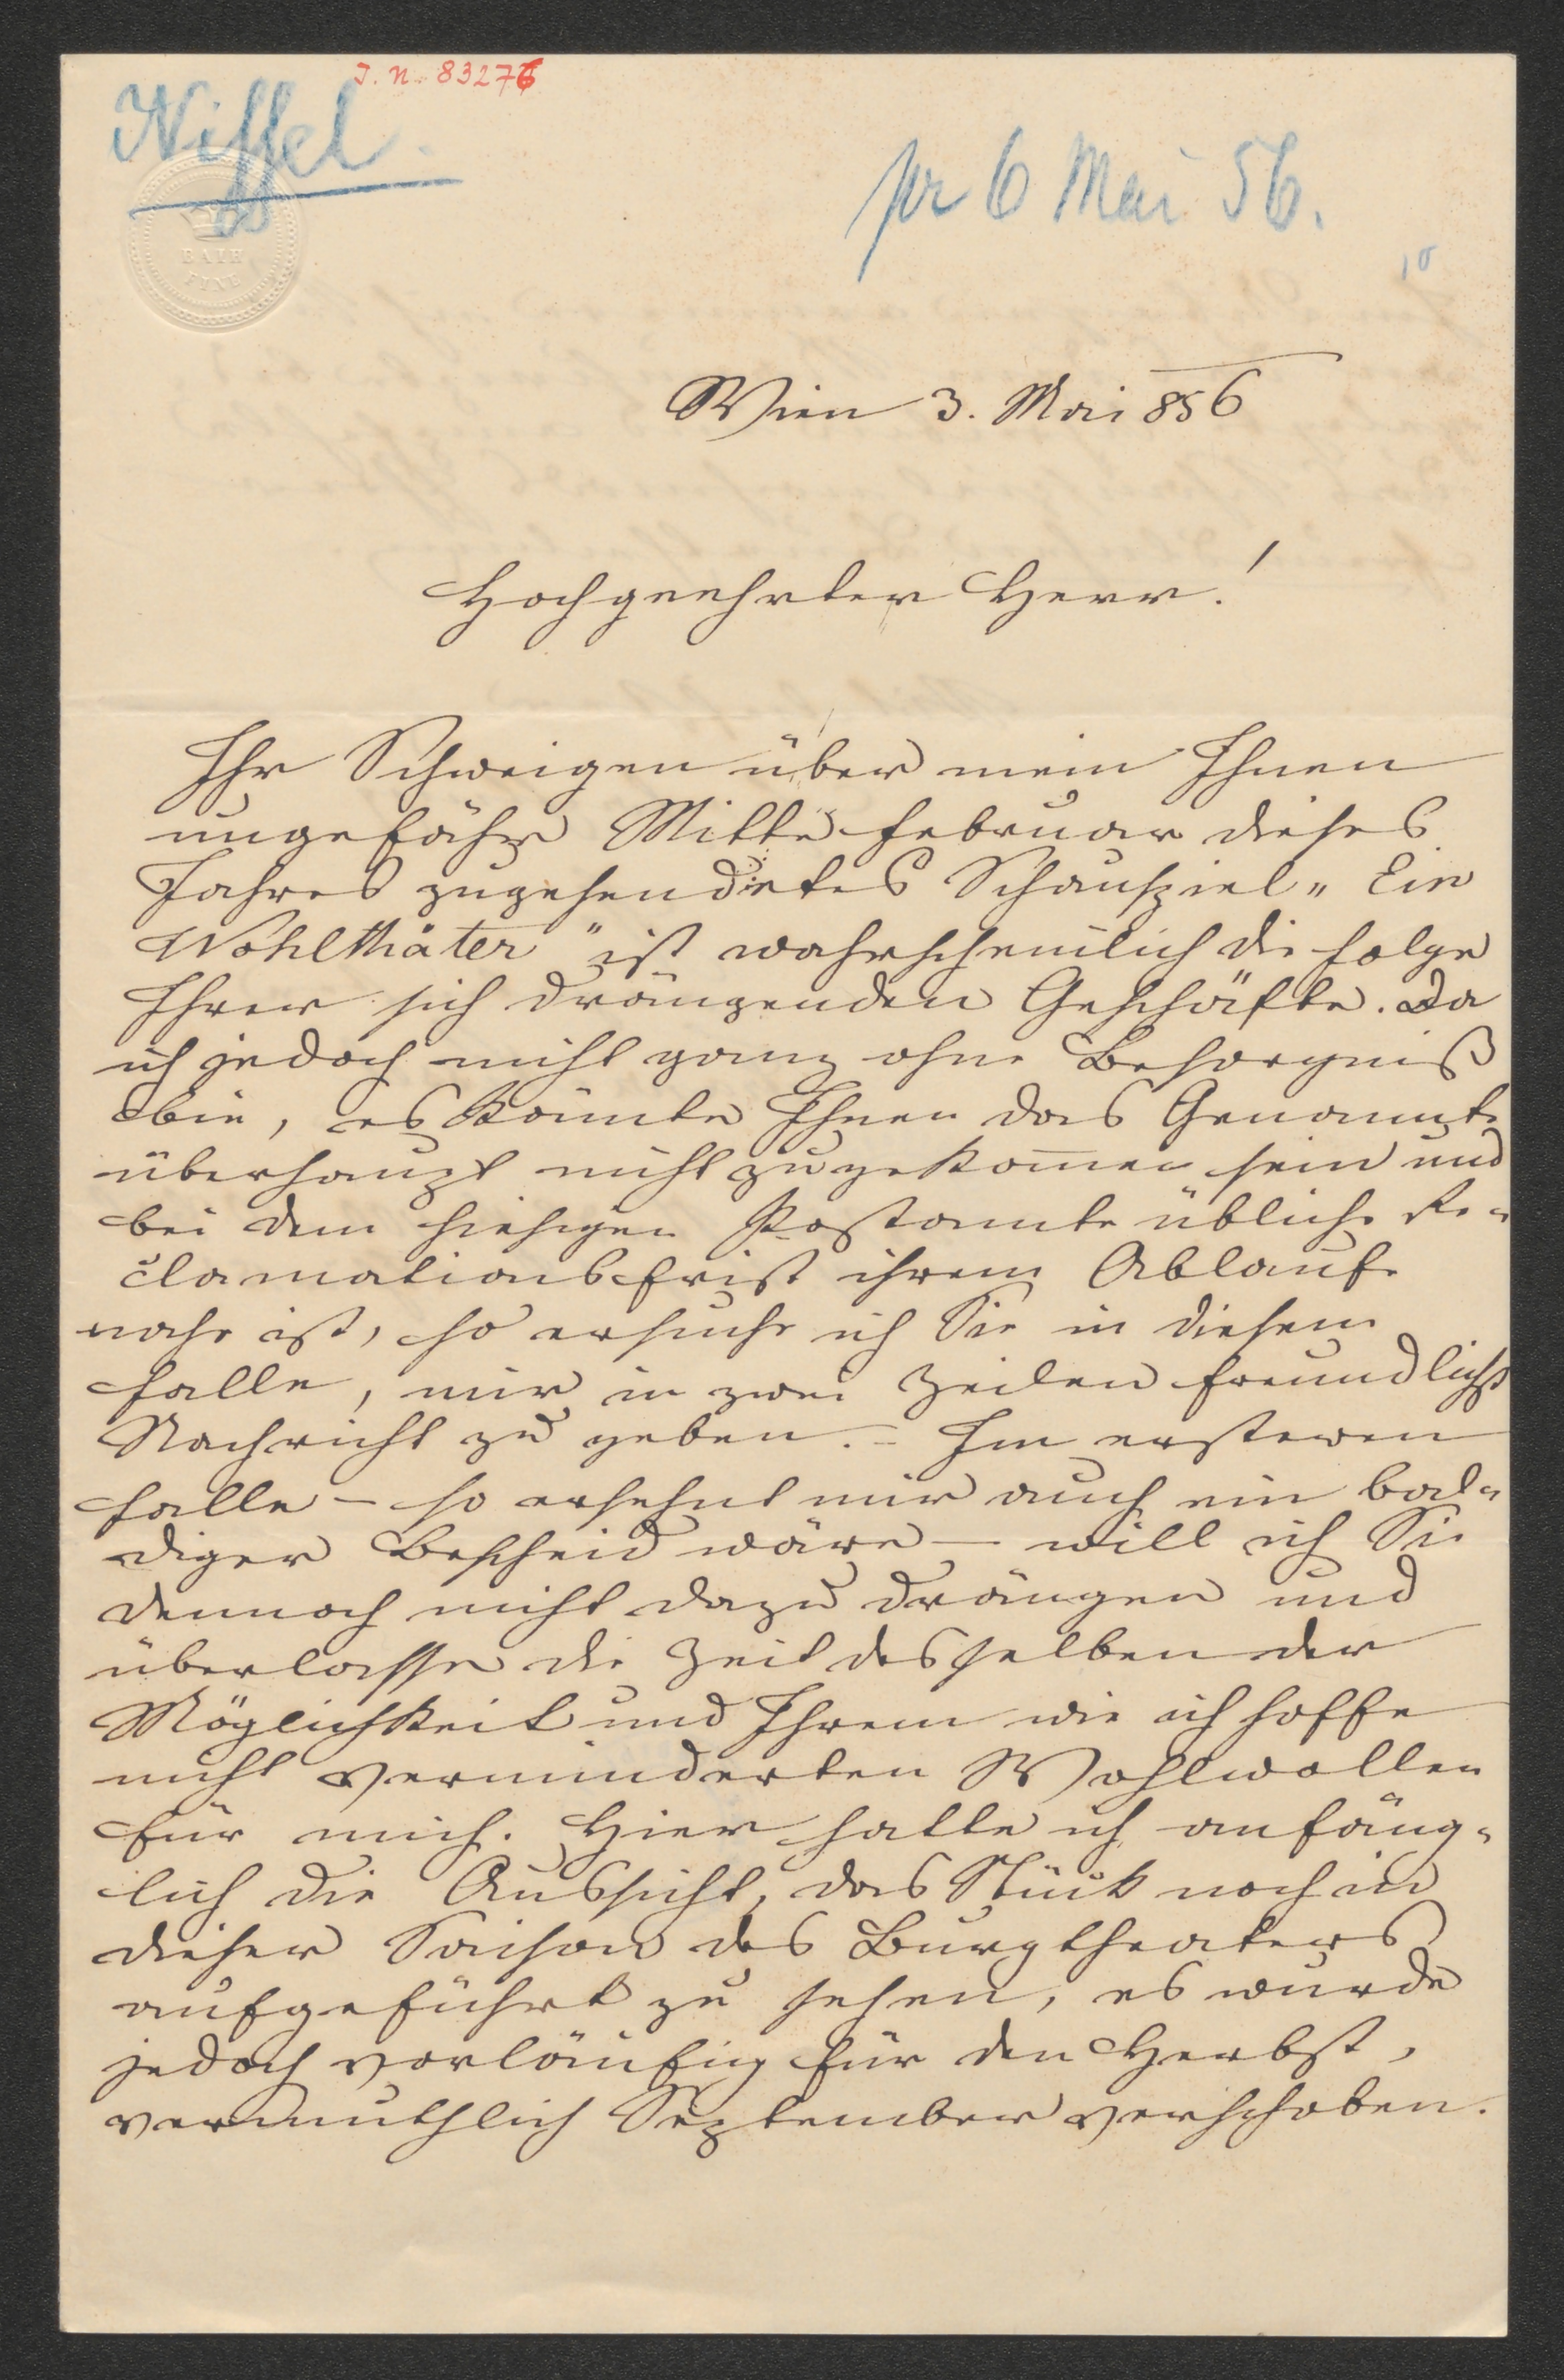 J. N. 83276
Nissel.
pr 6 Mai 56.
BATH
FINE
10
Wien 3. Mai 856
Hochgeehrter Herr!
Ihr Schweigen über mein Ihnen
ungefähr Mitte Februar dieses
Jahres zugesendetes Schauspiel „Ein
Wohlthäter“ ist wahrscheinlich die Folge
Ihrer sich drängenden Geschäfte. Da
ich jedoch nicht ganz ohne Besorgniß
bin, es könnte Ihnen das Genannte
überhaupt nicht zugekommen sein und
bei dem hiesigen Postamte übliche Re-
clamationsfrist ihrem Ablaufe
nahe ist, so ersuche ich Sie in diesem
Falle, mir in zwei Zeilen freundlichst
Nachricht zu geben. – Im ersteren
Falle – so ersehnt mir auch ein bal-
diger Bescheid wäre – will ich Sie
dennoch nicht dazu drängen und
überlasse die Zeit desselben der
Möglichkeit und Ihrem wie ich hoffe
nicht verminderten Wohlwollen
für mich. Hier hatte ich anfäng-
lich die Aussicht, das Stück noch in
dieser Saison des Burgtheaters
aufgeführt zu sehen, es wurde
jedoch vorläufig für den Herbst,
vermuthlich September verschoben.